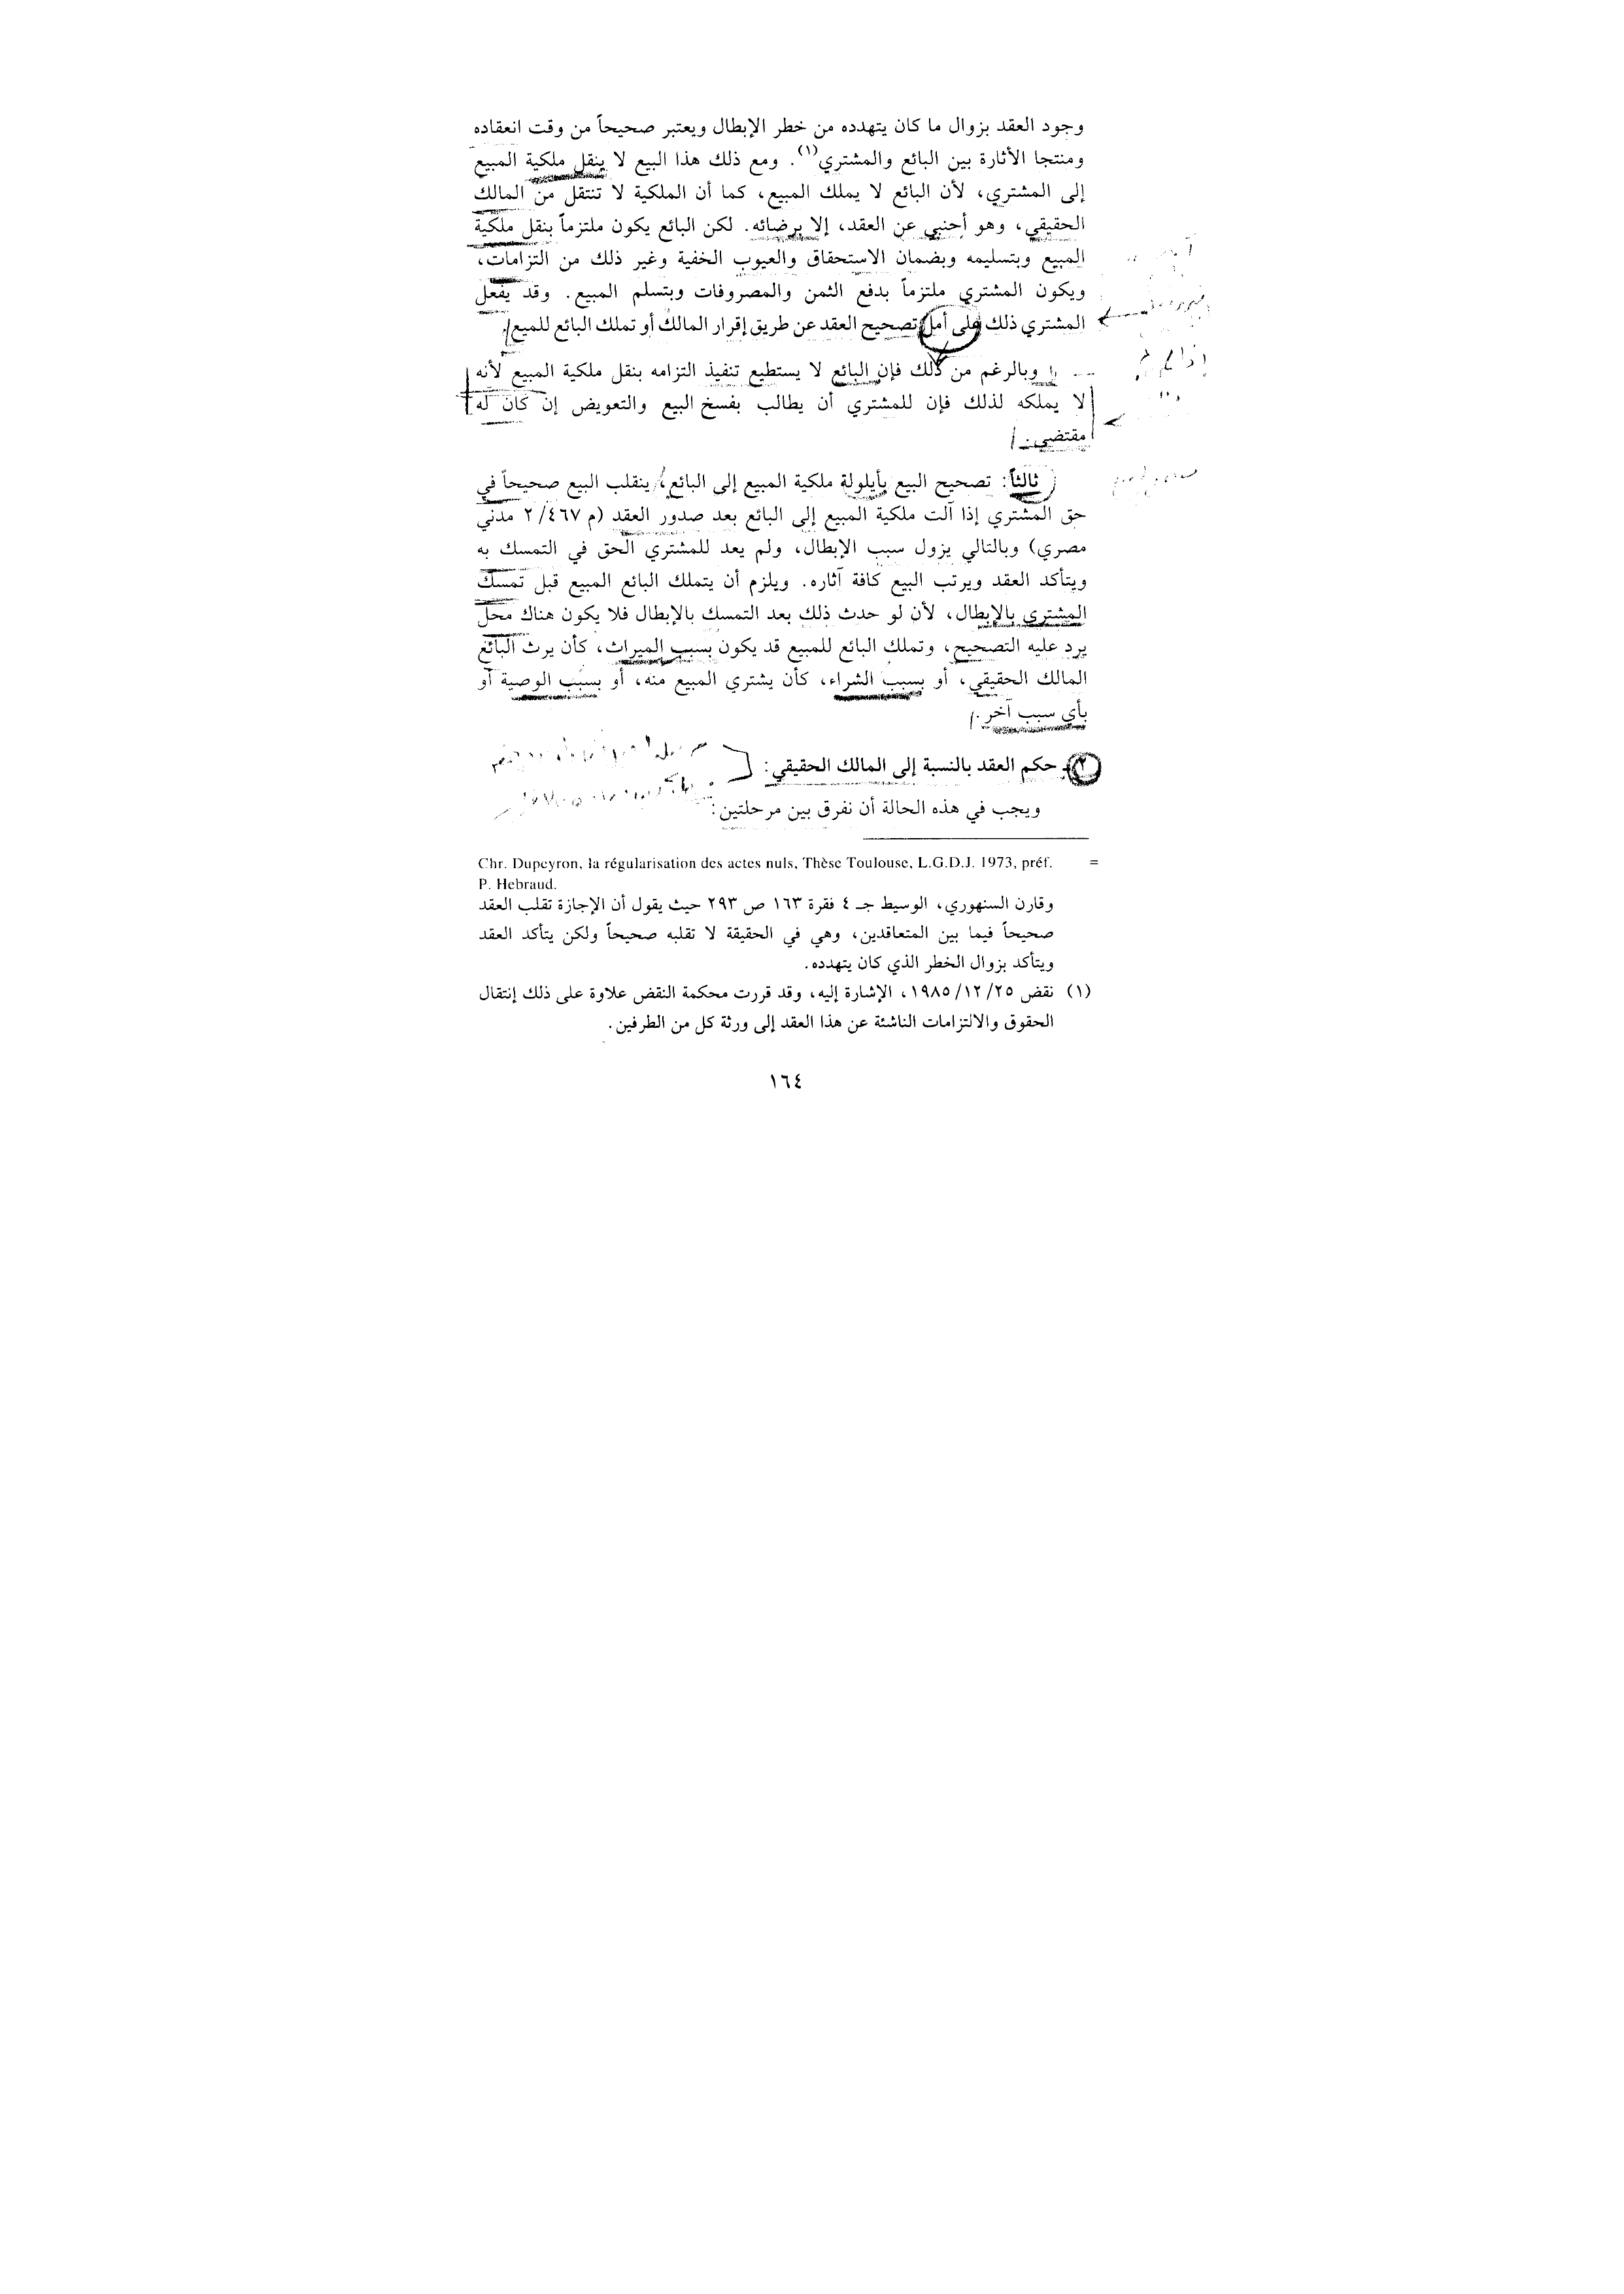 وجود العقد بزوال ما كان يتهدده من خطر الإبطال ويعتبر صحيحاً من وقت انعقاده
ومنتجا الأثارة بين البائع والمشتري(١). ومع ذلك هذا البيع لا ينقل ملكية المبيع
إلى المشتري، لأن البائع لا يملك المبيع، كما أن الملكية لا تنتقل من المالك
الحقيقي، وهو أجنبي عن العقد، إلا برضائه. لكن البائع يكون ملتزماً بنقل ملكية
المبيع وبتسليمه وبضمان الاستحقاق والعيوب الخفية وغير ذلك من التزامات،
ويكون المشتري ملتزماً بدفع الثمن والمصروفات وبتسلم المبيع. وقد يفعل
المشتري ذلك على أمل تصحيح العقد عن طريق إقرار المالك أو تملك البائع للمبيع.
وبالرغم من ذلك فإن البائع لا يستطيع تنفيذ التزامه بنقل ملكية المبيع لأنه
لا يملكه لذلك فإن للمشتري أن يطالب بفسخ البيع والتعويض إن كان له
مقتضى.
ثالثاً: تصحيح البيع بأيلولة ملكية المبيع إلى البائع، ينقلب البيع صحيحاً في
حق المشتري إذا آلت ملكية المبيع إلى البائع بعد صدور العقد (م ٤٦٧/ ٢ مدني
مصري) وبالتالي يزول سبب الإبطال، ولم يعد للمشتري الحق في التمسك به
ويتأكد العقد ويرتب البيع كافة آثاره. ويلزم أن يتملك البائع المبيع قبل تمسك
المشتري بالإبطال، لأن لو حدث ذلك بعد التمسك بالإبطال فلا يكون هناك محل
يرد عليه التصحيح، وتملك البائع للمبيع قد يكون بسبب الميراث، كأن يرث البائع
المالك الحقيقي، أو بسبب الشراء، كأن يشتري المبيع منه، أو بسبب الوصية أو
بأي سبب آخر.
٢ـ حكم العقد بالنسبة إلى المالك الحقيقي:
ويجب في هذه الحالة أن نفرق بين مرحلتين:
= Chr. Dupeyron, la régularisation des actes nuls, Thèse Toulouse, L.G.D.J. 1973, préf.
P. Hebraud.
وقارن السنهوري، الوسيط جـ ٤ فقرة ١٦٣ ص ٢٩٣ حيث يقول أن الإجازة تقلب العقد
صحيحاً فيما بين المتعاقدين، وهي في الحقيقة لا تقلبه صحيحاً ولكن يتأكد العقد
ويتأكد بزوال الخطر الذي كان يتهدده.
(١) نقض ٢٥/ ١٢/ ١٩٨٥، الإشارة إليه، وقد قررت محكمة النقض علاوة على ذلك إنتقال
الحقوق والالتزامات الناشئة عن هذا العقد إلى ورثة كل من الطرفين.
١٦٤